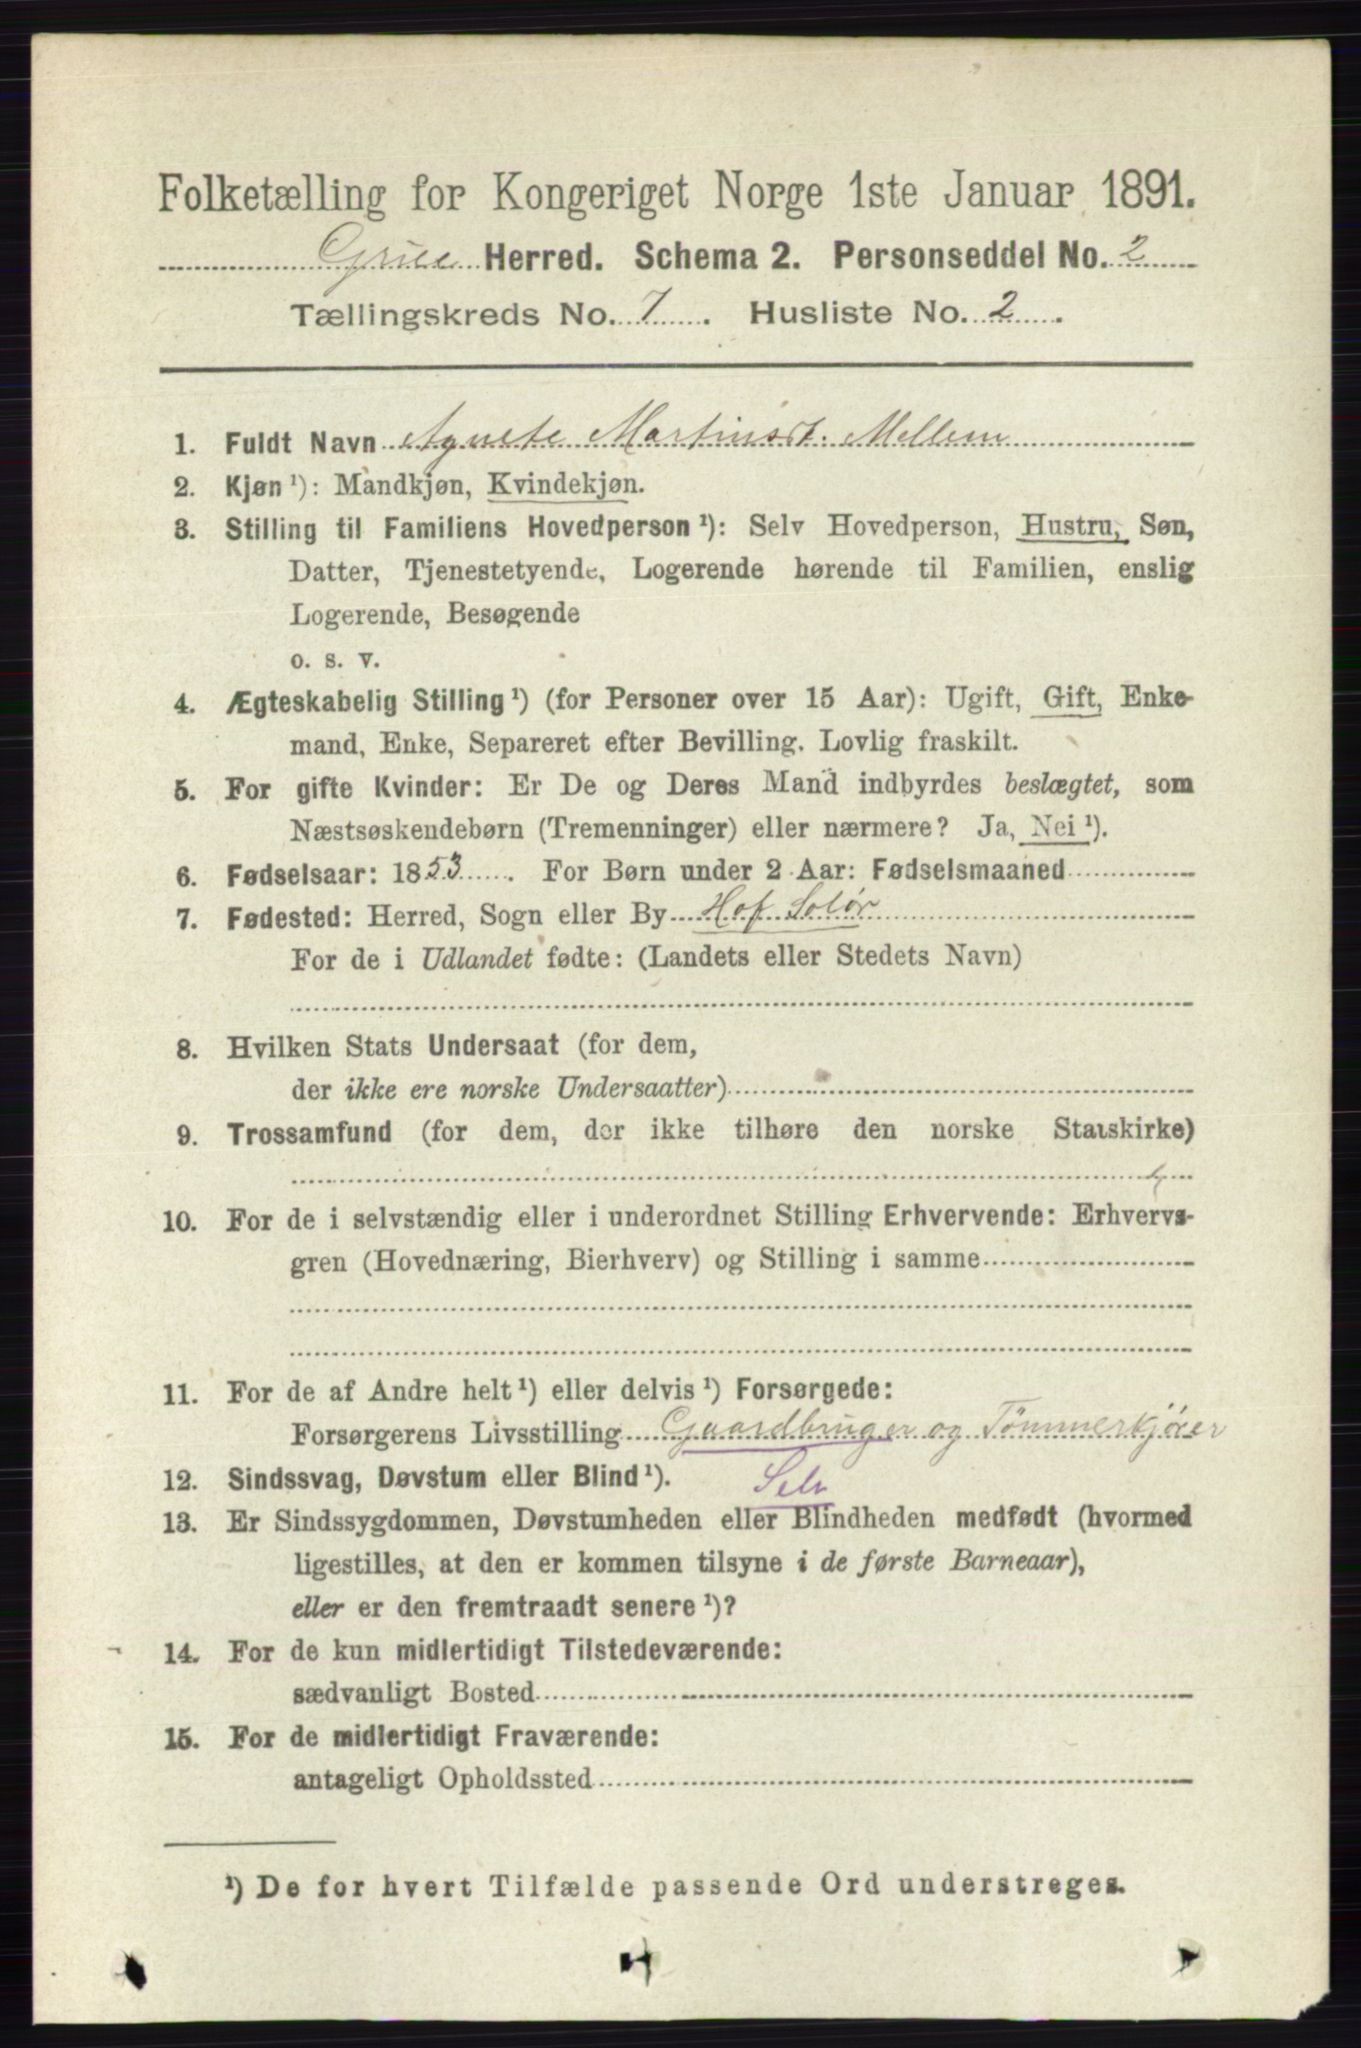 Folketælling for Kongeriget Norge 1ste Januar 1891.
Grue Herred. Schema 2. Personseddel No. 2
Tællingskreds No. 7. Husliste No. 2.
1. Fuldt Navn Agnete Martinsd. Mellem
2. Kjøn ¹): Mandkjøn, Kvindekjøn.
3. Stilling til Familiens Hovedperson ¹): Selv Hovedperson, Hustru, Søn,
Datter, Tjenestetyende, Logerende hørende til Familien, enslig
Logerende, Besøgende
o. s. v.
4. Ægteskabelig Stilling ¹) (for Personer over 15 Aar): Ugift, Gift, Enke-
mand, Enke, Separeret efter Bevilling. Lovlig fraskilt.
5. For gifte Kvinder: Er De og Deres Mand indbyrdes beslægtet, som
Næstsøskendebørn (Tremenninger) eller nærmere? Ja, Nei ¹).
6. Fødselsaar: 1853. For Børn under 2 Aar: Fødselsmaaned
7. Fødested: Herred, Sogn eller By Hof Solør
For de i Udlandet fødte: (Landets eller Stedets Navn)
8. Hvilken Stats Undersaat (for dem,
der ikke ere norske Undersaatter)
9. Trossamfund (for dem, der ikke tilhøre den norske Statskirke)
10. For de i selvstændig eller i underordnet Stilling Erhvervende: Erhvervs-
gren (Hovednæring, Bierhverv) og Stilling i samme
11. For de af Andre helt ¹) eller delvis ¹) Forsørgede:
Forsørgerens Livsstilling Gaardbruger og Tømmerkjører
12. Sindssvag, Døvstum eller Blind ¹). Selv
13. Er Sindssygdommen, Døvstumheden eller Blindheden medfødt (hvormed
ligestilles, at den er kommen tilsyne i de første Barneaar),
eller er den fremtraadt senere ¹)?
14. For de kun midlertidigt Tilstedeværende:
sædvanligt Bosted
15. For de midlertidigt Fraværende:
antageligt Opholdssted
¹) De for hvert Tilfælde passende Ord understreges.